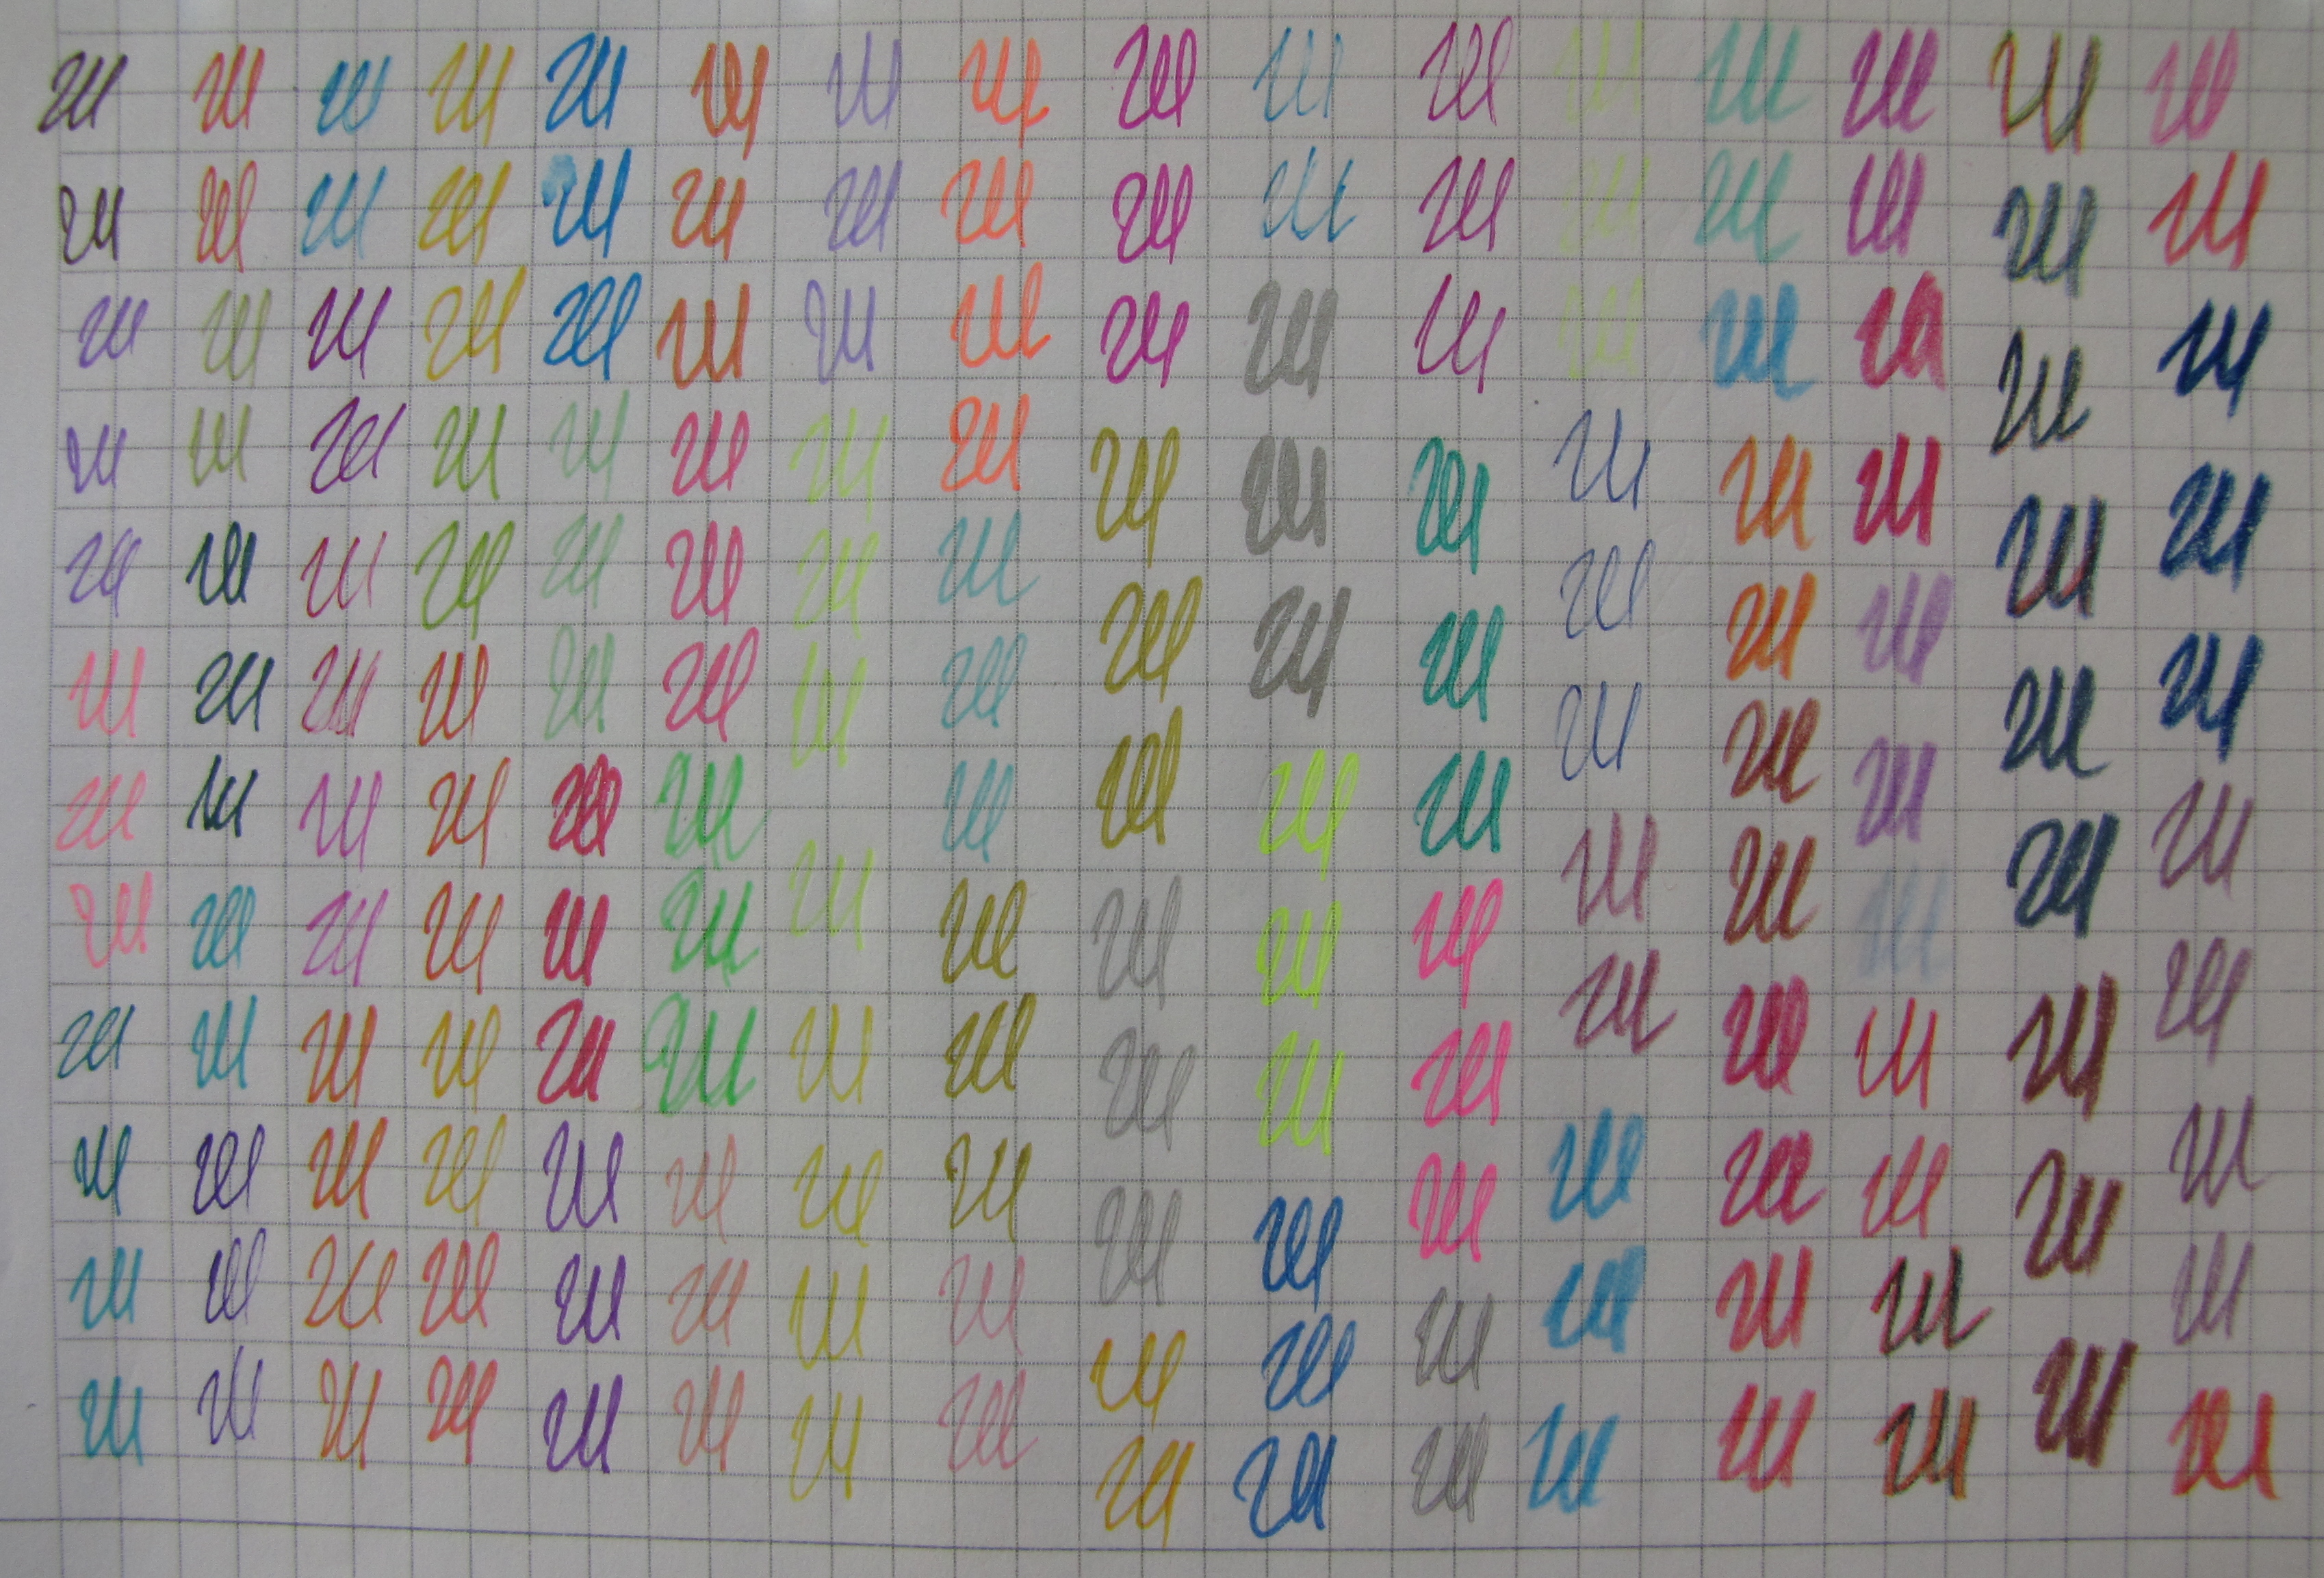 ш ш ш ш ш ш ш ш ш ш ш ш ш ш ш ш
ш ш ш ш ш ш ш ш ш ш ш ш ш ш ш ш
ш ш ш ш ш ш ш ш ш ш ш ш ш ш ш ш
ш ш ш ш ш ш ш ш ш ш ш ш ш ш ш ш
ш ш ш ш ш ш ш ш ш ш ш ш ш ш ш ш
ш ш ш ш ш ш ш ш ш ш ш ш ш ш ш ш
ш ш ш ш ш ш ш ш ш ш ш ш ш ш ш ш
ш ш ш ш ш ш ш ш ш ш ш ш ш ш ш ш
ш ш ш ш ш ш ш ш ш ш ш ш ш ш ш ш
ш ш ш ш ш ш ш ш ш ш ш ш ш ш ш
ш ш ш ш ш ш ш ш ш ш ш ш ш ш
ш ш ш ш ш ш ш